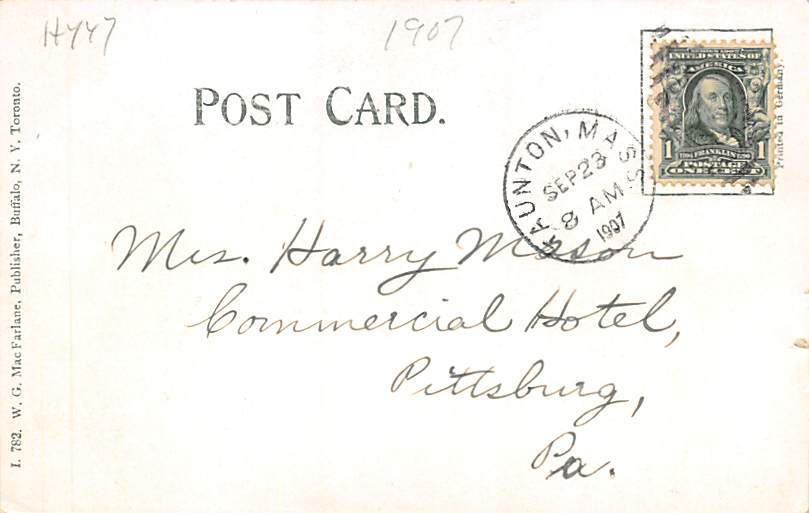 H447
1907
POST CARD.
UNITED STATES OF
AMERICA
1 FRANKLIN 1
POSTAGE
ONE CENT
Printed in Germany.
TAUNTON, MASS.
SEP 23
8 AM
1907
Mrs. Harry Mason
Commercial Hotel,
Pittsburg,
Pa.
I. 782. W. G. MacFarlane, Publisher, Buffalo, N. Y. Toronto.